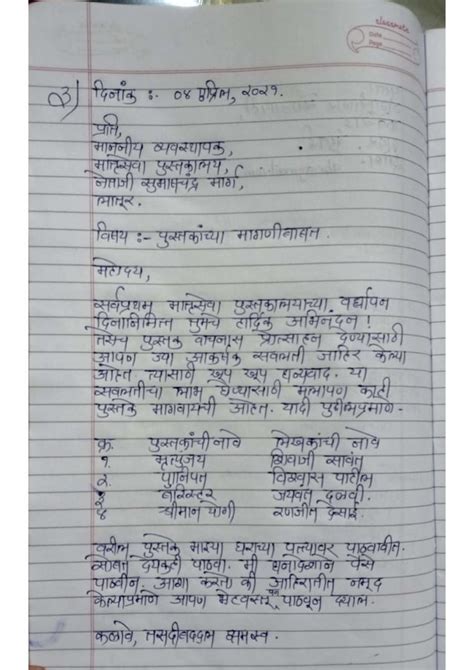 classmate
Date
Page
३) दिनांक :- ०४ एप्रिल, २०२१.
प्रति,
माननीय व्यवस्थापक,
मातृसेवा पुस्तकालय,
नेताजी सुभाषचंद्र मार्ग,
लातूर.
विषय :- पुस्तकांच्या मागणीबाबत.
महोदय,
सर्वप्रथम मातृसेवा पुस्तकालयाच्या वर्धापन
दिनानिमित्त तुमचे हार्दिक अभिनंदन!
तसेच पुस्तक वाचनास प्रोत्साहन देण्यासाठी
आपण ज्या आकर्षक सवलती जाहिर केल्या
आहेत. त्यासाठी खूप खूप धन्यवाद. या
सवलतीचा लाभ घेण्यासाठी मलापण काही
पुस्तके मागवायची आहेत. यादी पुढीलप्रमाणे.
क्र. पुस्तकांची नावे लेखकांची नावे
१. मृत्युंजय शिवाजी सावंत
२. पानिपत विश्वास पाटील
३ बॅरिस्टर जयवंत दळवी.
४ श्रीमान योगी रणजीत देसाई.
वरील पुस्तके माझ्या घराच्या पत्त्यावर पाठवावीत.
सोबत देयकही पाठवा. मी धनादेशाने पैसे
पाठवीन. आशा करतो की जाहिरातीत नमूद
केल्याप्रमाणे आपण भेटवस्तू पाठवून द्याल.
कळावे, तसदीबद्दल क्षमस्व.